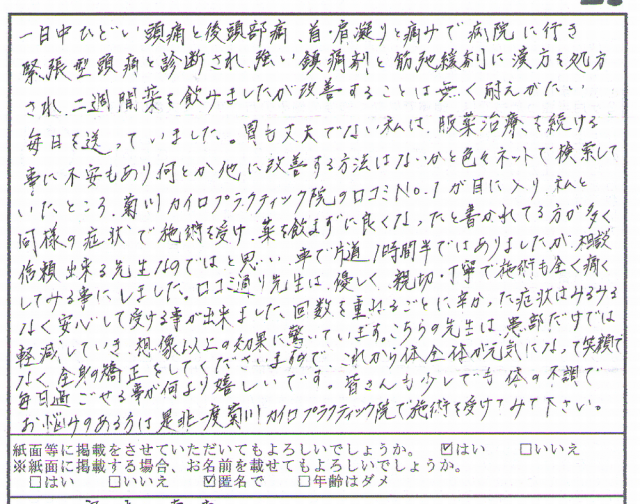 一日中ひどい頭痛と後頭部痛、首・肩凝りと痛みで病院に行き
緊張型頭痛と診断され、強い鎮痛剤と筋弛緩剤に漢方を処方
され、二週間薬を飲みましたが改善することは無く耐えがたい
毎日を送っていました。胃も丈夫でない私は、服薬治療を続ける
事に不安もあり何とか他に改善する方法はないかと色々ネットで検索して
いたところ、菊川カイロプラクティック院の口コミNo.1が目に入り、私と
同様の症状で施術を受け、薬を飲まずに良くなったと書かれてる方が多く
信頼出来る先生なのではと思い、車で片道1時間半ではありましたが、相談
してみる事にしました。口コミ通り先生は、優しく、親切・丁寧で施術も全く痛く
なく安心して受ける事が出来ました。回数を重ねるごとに辛かった症状はみるみる
軽減していき、想像以上の効果に驚いています。こちらの先生は、患部だけでは
なく全身の矯正をしてくださいますので、これから体全体が元気になって笑顔で
毎日過ごせる事が何より嬉しいです。皆さんも少しでも体の不調で
お悩みのある方は是非一度菊川カイロプラクティック院で施術を受けてみて下さい。
紙面等に掲載をさせていただいてもよろしいでしょうか。 ☑はい □いいえ
※紙面に掲載する場合、お名前を載せてもよろしいでしょうか。
□はい □いいえ ☑匿名で □年齢はダメ